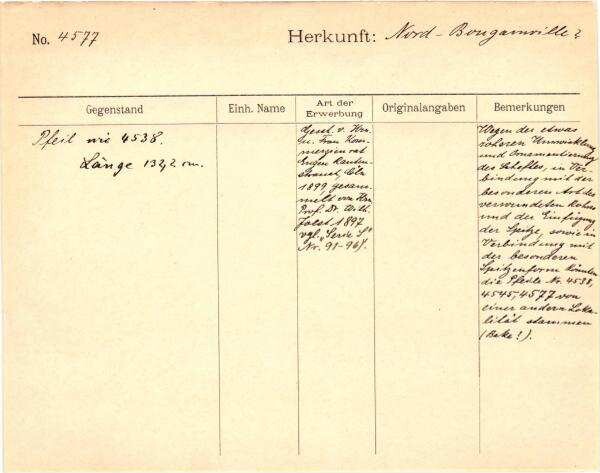 No. 4577
Herkunft: Nord-Bougainville?
Gegenstand
Einh. Name
Art der Erwerbung
Originalangaben
Bemerkungen
Pfeil wie 4538.
Länge 132,2 cm.
Gesch. v. Hrn.
u. Frau Kom-
merzienrat
Eugen Rauten-
strauch, Cöln
1899, gesam-
melt von Hrn.
Prof. Dr. Wilh.
Joest 1897
vgl. "Serie S"
Nr. 91-96/.
Wegen der etwas
roheren Umwicklung
und Ornamentierung
des Schaftes, in Ver-
bindung mit der
besonderen Art des
verwendeten Rohres
und der Einfügung
der Spitze, sowie in
Verbindung mit
der besonderen
Spitzenform könnten
die Pfeile Nr. 4538,
4545, 4577 von
einer andern Loka-
lität stammen
(Buka?).